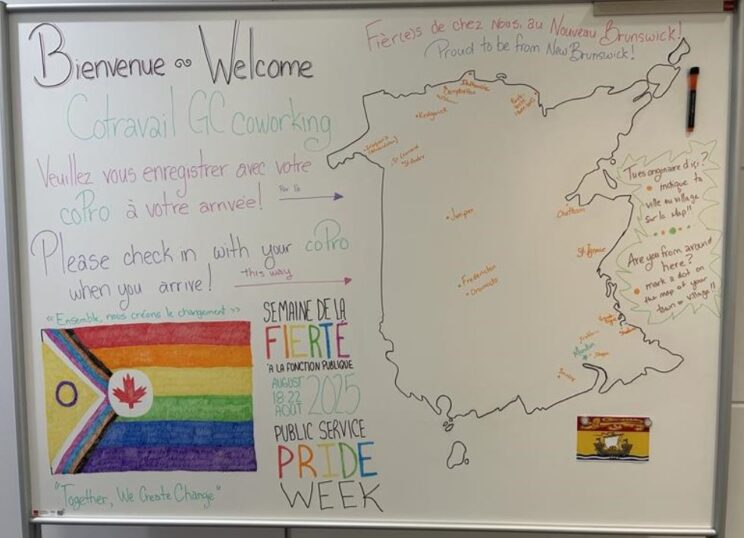 Bienvenue ~ Welcome
Cotravail GC coworking
Veuillez vous enregistrer avec votre
coPro à votre arrivée!
Par là
Please check in with your coPro
when you arrive!
this way
Fièr(e)s de chez nous, au Nouveau Brunswick!
Proud to be from New Brunswick!
Campbellton
Kedgwick
St Leonard
Juniper
Chatham
St-Ignace
Fredericton
Oromocto
Moncton
Tu es originaire d'ici?
indique ta
ville ou village
sur la map!!
Are you from around
here?
mark a dot on
the map of your
town or village!!
« Ensemble, nous créons le changement »
"Together, We Create Change"
SEMAINE DE LA
FIERTÉ
À LA FONCTION PUBLIQUE
AUGUST
18-22
AOÛT
2025
PUBLIC SERVICE
PRIDE
WEEK